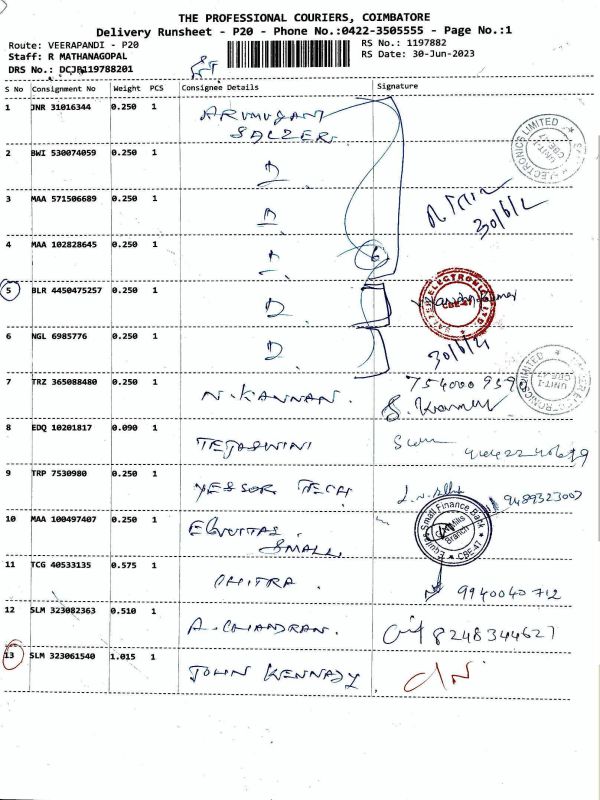 THE PROFESSIONAL COURIERS, COIMBATORE
Delivery Runsheet - P20 - Phone No.:0422-3505555 - Page No.:1
Route: VEERAPANDI - P20
RS No.: 1197882
Staff: R MATHANAGOPAL
RS Date: 30-Jun-2023
DRS No.: DCJB119788201
S No Consignment No Weight PCS Consignee Details Signature
1 JNR 31016344 0.250 1 ARUMUGAM
SALZER
2 BWI 530074059 0.250 1
3 MAA 571506689 0.250 1
4 MAA 102828645 0.250 1 6
5 BLR 4450475257 0.250 1
6 NGL 6985776 0.250 1
7 TRZ 365088480 0.250 1 N. KANNAN.
8 EDQ 10201817 0.090 1 TEJASWINI
9 TRP 7530980 0.250 1 YESSOR TECH 9489323007
10 MAA 100497407 0.250 1 EQUITAS
SMALL
Equitas Small Finance Bank
Branch
CBE-47
11 TCG 40533135 0.575 1 CHITRA. 9940040712
12 SLM 323082363 0.510 1 A. CHANDRAN. 8248344627
13 SLM 323061540 1.015 1 JOHN KENNADY.